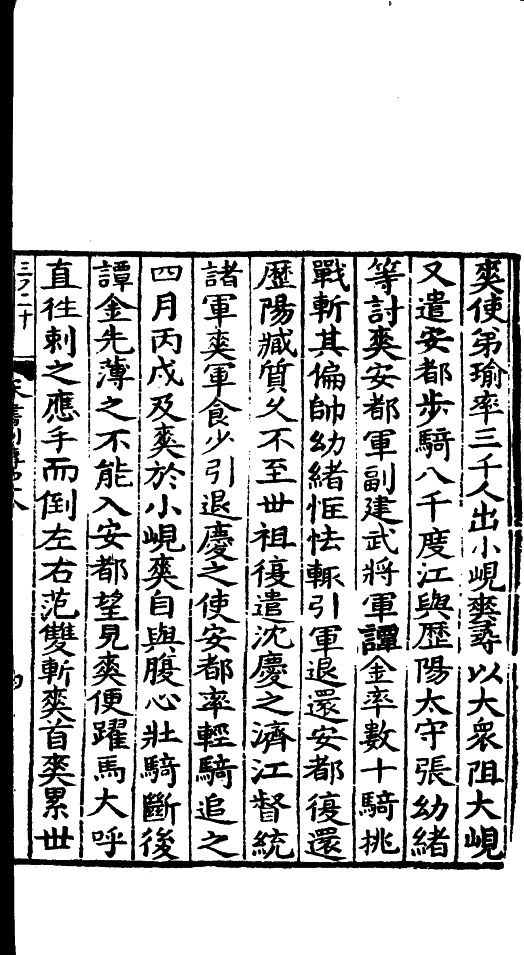 爽使弟瑜率三千人出小峴爽尋以大衆阻大峴
又遣安都步騎八千度江與歷陽太守張幼緒
等討爽安都軍副建武將軍譚金率數十騎挑
戰斬其偏帥幼緒恇怯輒引軍退還安都復還
歷陽臧質久不至世祖復遣沈慶之濟江督統
諸軍爽軍食少引退慶之使安都率輕騎追之
四月丙戌及爽於小峴爽自與腹心壯騎斷後
譚金先薄之不能入安都望見爽便躍馬大呼
直往刺之應手而倒左右范雙斬爽首爽累世